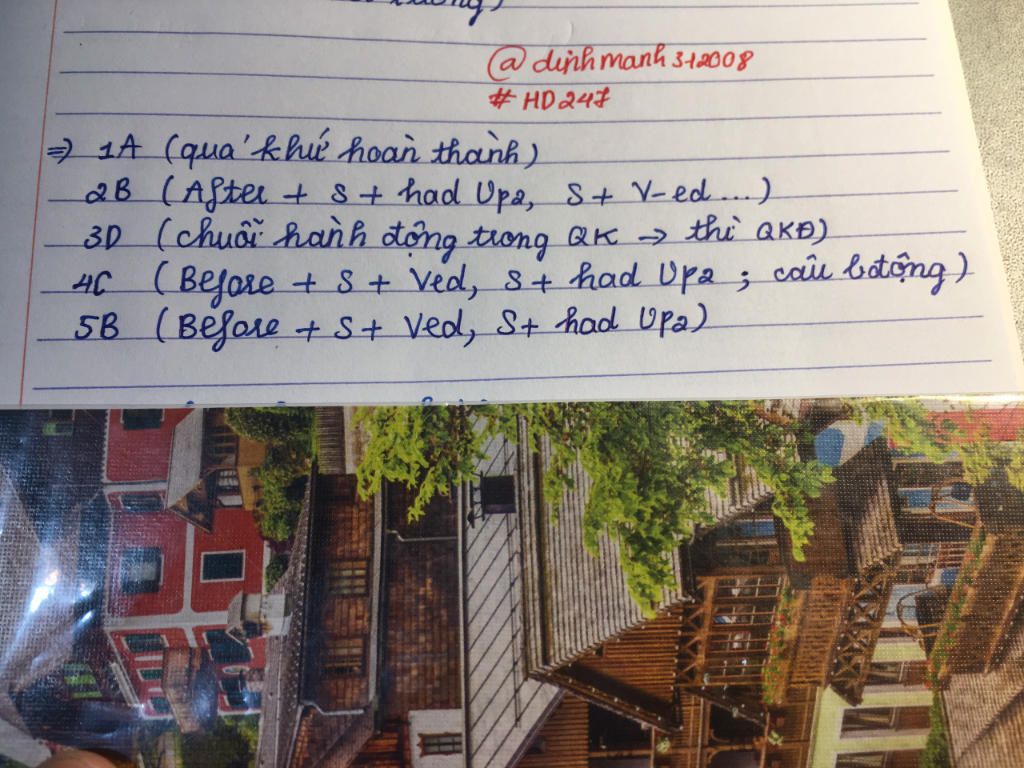 @ dinhmanh312008
# HD247
=> 1A (quá khứ hoàn thành)
2B (After + S + had Vp2, S + V-ed ...)
3D (chuỗi hành động trong QK → thì QKĐ)
4C (Before + S + Ved, S + had Vp2 ; câu bđộng)
5B (Before + S + Ved, S + had Vp2)